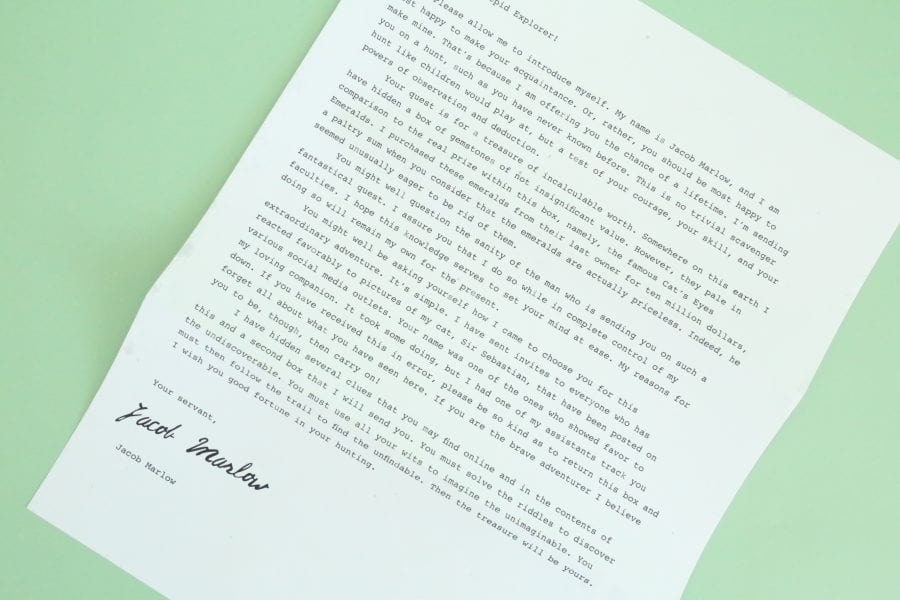 Explorer!
Please allow me to introduce myself. My name is Jacob Marlow, and I am
happy to make your acquaintance. Or, rather, you should be most happy to
make mine. That's because I am offering you the chance of a lifetime. I'm sending
you on a hunt, such as you have never known before. This is no trivial scavenger
hunt like children would play at, but a test of your courage, your skill, and your
powers of observation and deduction.
Your quest is for a treasure of incalculable worth. Somewhere on this earth I
have hidden a box of gemstones of not insignificant value. However, they pale in
comparison to the real prize within this box, namely, the famous Cat's Eyes
Emeralds. I purchased these emeralds from their last owner for ten million dollars,
a paltry sum when you consider that the emeralds are actually priceless. Indeed, he
seemed unusually eager to be rid of them.
You might well question the sanity of the man who is sending you on such a
fantastical quest. I assure you that I do so while in complete control of my
faculties. I hope this knowledge serves to set your mind at ease. My reasons for
doing so will remain my own for the present.
You might well be asking yourself how I came to choose you for this
extraordinary adventure. It's simple. I have sent invites to everyone who has
reacted favorably to pictures of my cat, Sir Sebastian, that have been posted on
various social media outlets. Your name was one of the ones who showed favor to
my loving companion. It took some doing, but I had one of my assistants track you
down. If you have received this in error, please be so kind as to return this box and
forget all about what you have seen here. If you are the brave adventurer I believe
you to be, though, then carry on!
I have hidden several clues that you may find online and in the contents of
this and a second box that I will send you. You must solve the riddles to discover
the undiscoverable. You must use all your wits to imagine the unimaginable. You
must then follow the trail to find the unfindable. Then the treasure will be yours.
I wish you good fortune in your hunting.
Your servant,
Jacob Marlow
Jacob Marlow